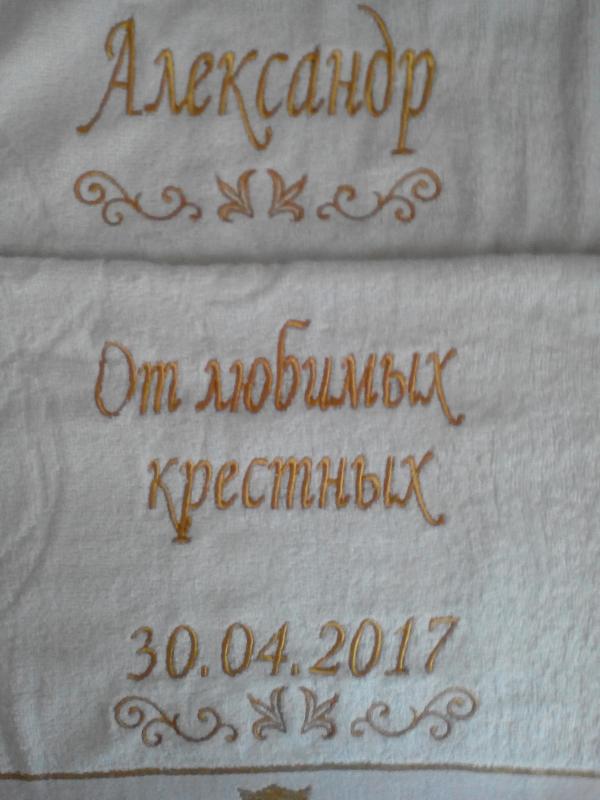 Александр
От любимых
крестных
30.04.2017